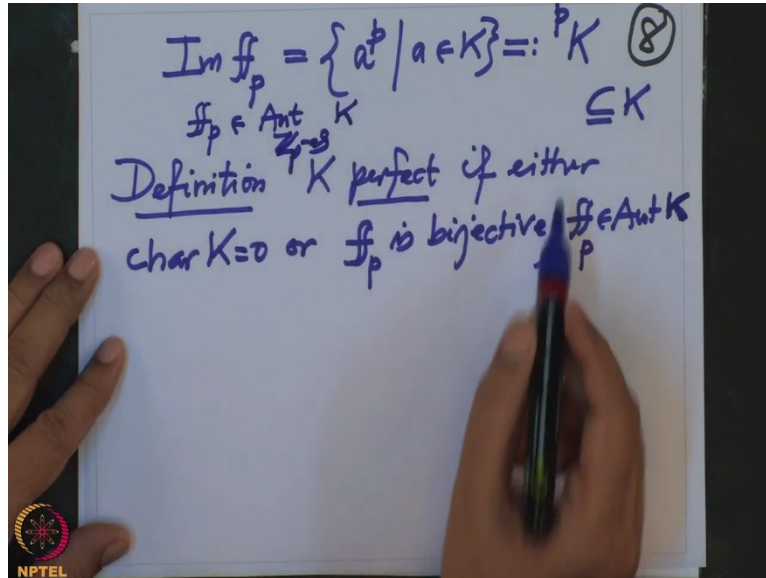 Im f_p = { a^p | a ∈ K } =: ^pK ⑧
f_p ∈ Aut_{ℤ_p-alg} K ⊆ K
Definition K perfect if either
char K=0 or f_p is bijective, f_p ∈ Aut K
NPTEL